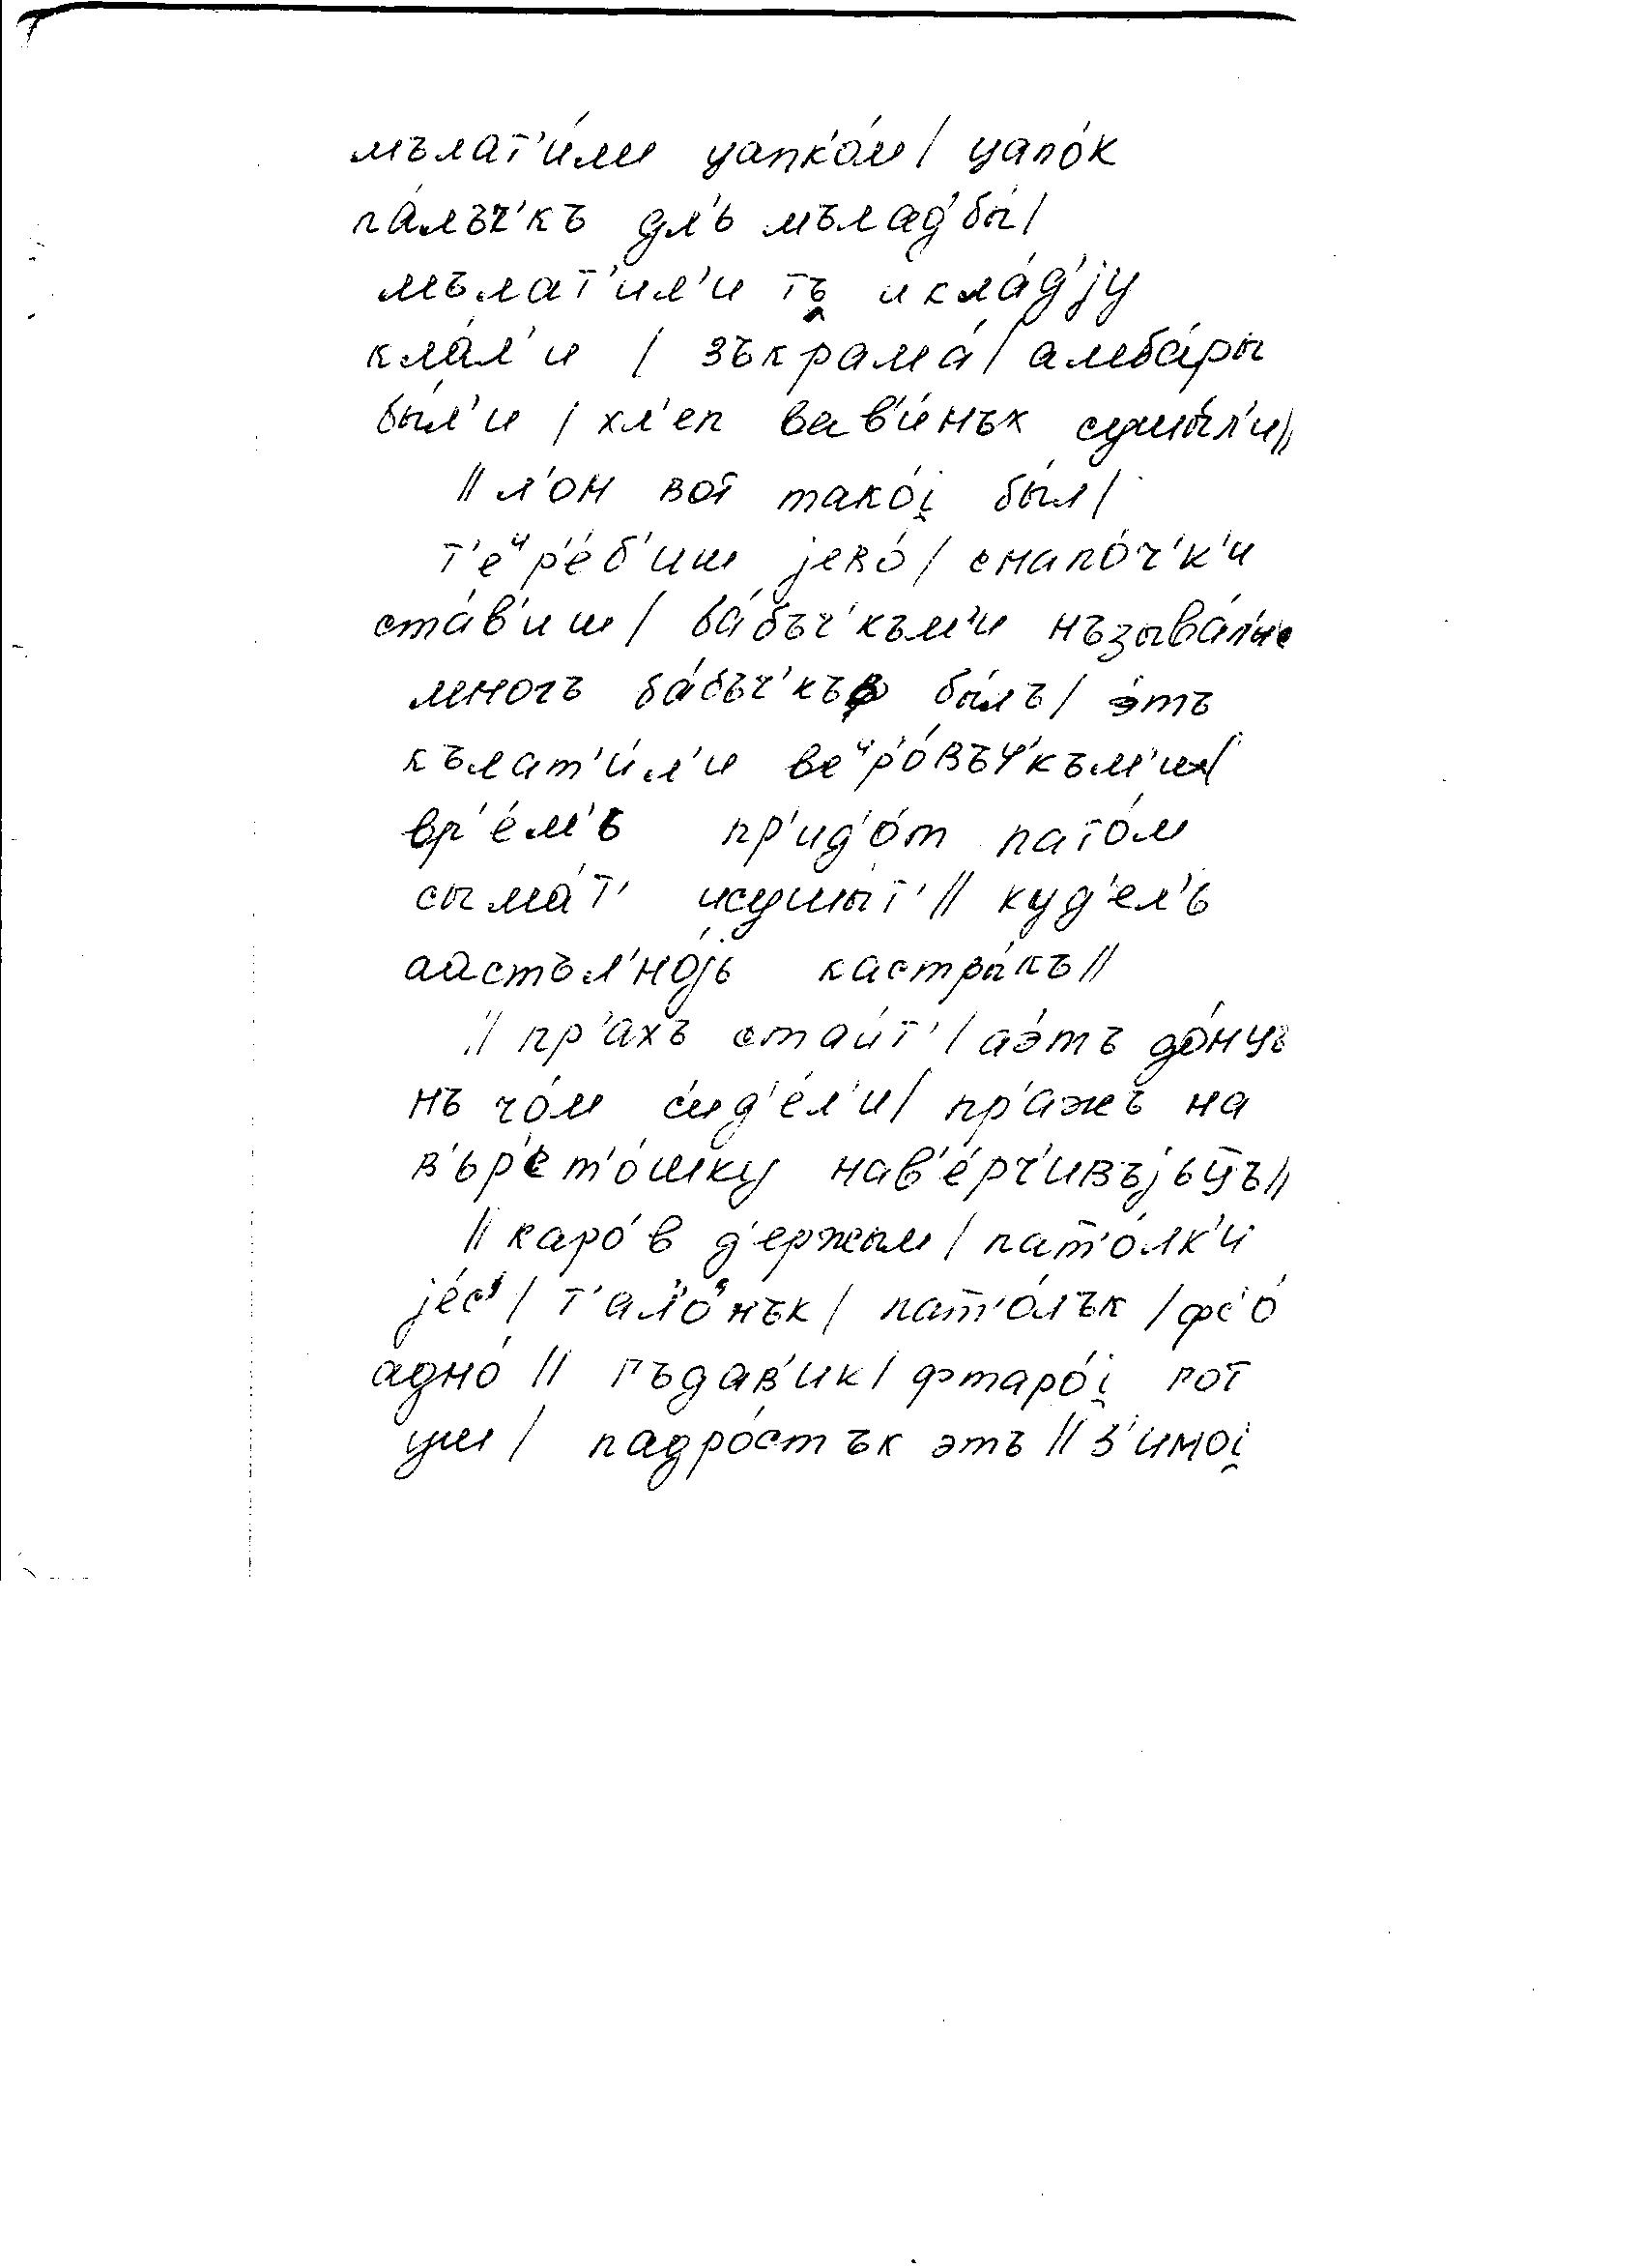 мълат'и́ли цапко́м/ цапо́к
па́лъч'къ дл'ь мълад'бы́/
мълат'ил'и тъ и кла́д'jу
кла́л'и / зъкрама́/ амба́ры
бы́л'и / хл'еп вав'и́нъх сушы́л'и//
// л'он вот тако́i̯ бы́л/
т'еᶦр'е́б'иш jево́/ снапо́ч'к'и
ста́в'иш/ ба́бъч'към'и нъзыва́л'ис
многъ ба́бъч'къв бы́лъ/ э́тъ
кълат'и́л'и веᶦр'о́въч'към'и/
вр'е́м'ь пр'ид'о́т пато́м
сыма́т' исушы́т'// куд'ел'ь
аастъл'но́jь кастры́къ//
// пр'ахъ стаи́т'/ аэ́тъ до́нцъ
нъ чо́м с'ид'е́л'и/ пр'ажъ на
в'ър'ет'о́шку нав'е́рч'ивъjьцъ//
// каро́в д'ержым/ пат'о́лк'и
jе́с'/ т'ал'о́нък/ пат'о́лък /фс'о́
адно́ // гъдав'ик/ фтаро́i̯ гот
уш/ падро́стък этъ // з'имоi̯